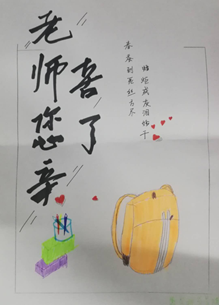 老师您辛
苦了
春蚕到死丝方尽
蜡炬成灰泪始干